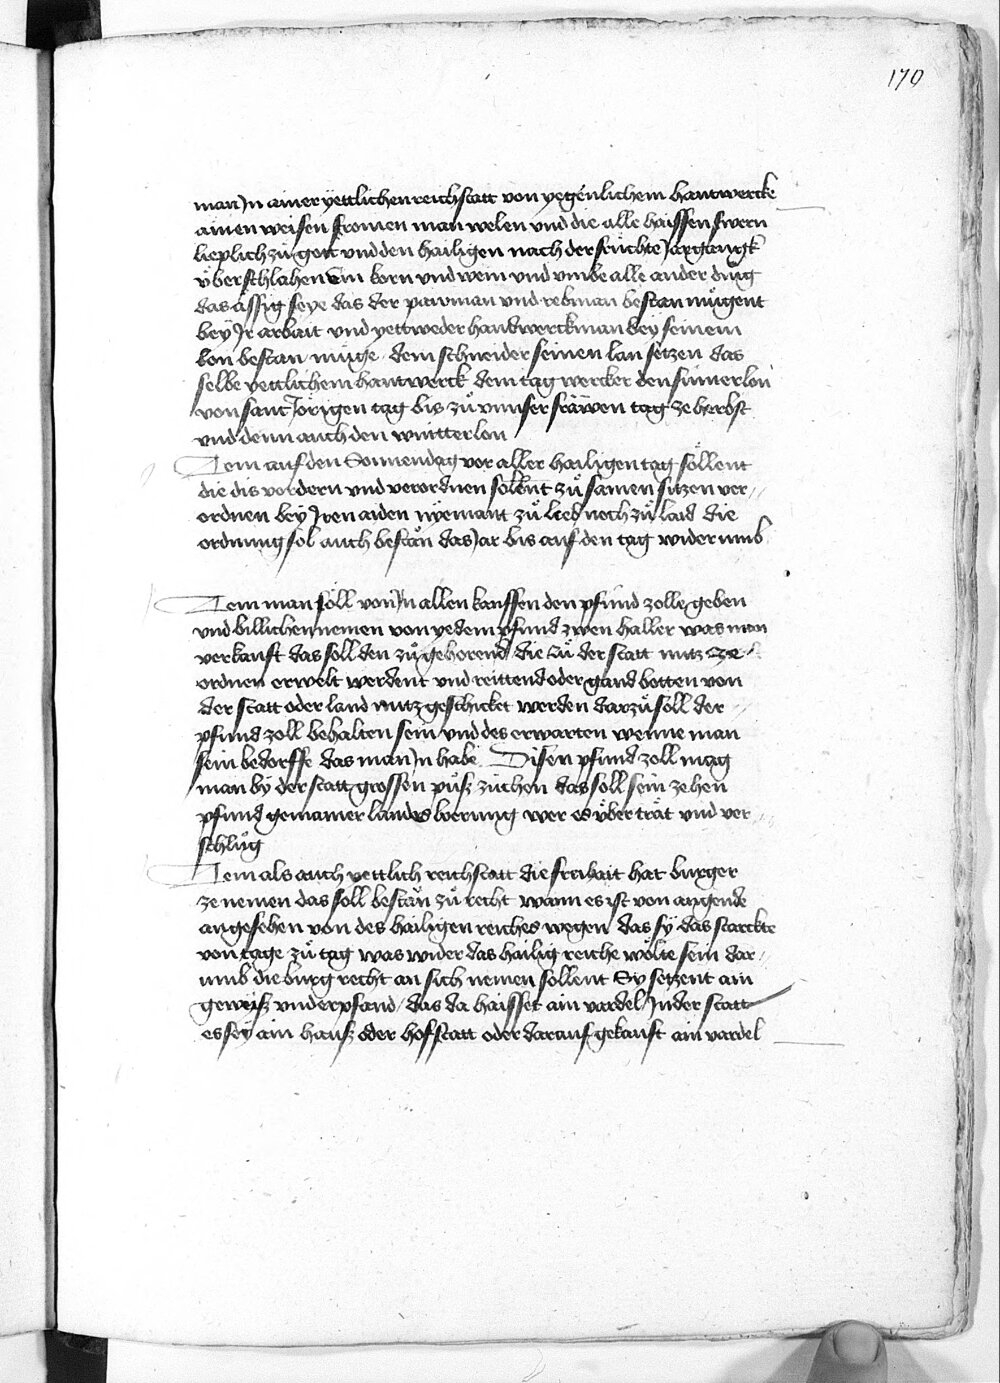 170
man Jn ainer yettlichen reichstatt von yegenlichem hantwercke
ainen weisen fromen man welen vnd die alle haissen swern
lieplich zů gott vnd den hailigen nach der früchte Jargangk
v̈berschlahen Ein korn vnd wein vnd vmbe alle ander ding
das ässig seye das der pawman vnd rebman bestan mügent
bey Jr arbait vnd yettweder handwerckman bey seinem
lon bestan müge dem schneider seinen lon setzen das
selbe yettlichem hantwerck dem tagwercker den sumerlon
von sant Jörigen tag bis zů vnnser frawen tag ze herbst
vnd denn auch den wintterlon
Item auf den Sonnendag vor aller hailigen tag söllent
die dis vordern vnd verordnen sollent zů samen sitzen ver
ordnen bey Jren aiden nyemant zů lieb noch zů laid die
ordnung sol auch bestan das Jar bis auf den tag widerumb
Item man söll von Jn allen kauffen den pfund zolle geben
vnd billichen nemen von yedem pfund zwen haller was man
verkauft das soll den zů gehorend die zů der statt nutz ze
ordnen erwelt werdent vnd reittend oder gand botten von
der statt oder land nutz geschicket werden darzu soll der
pfund zoll behalten sein vnd des erwarten wenne man
sein bedorffe das man Jn habe Disen pfund zoll mag
man by der statt grossen půsz züchen das soll sein zehen
pfund gemainer landes werung wer es v̈bertrat vnd ver
schlůg
Item als auch yettlich reichstatt die freihait hat burger
ze nemen das soll bestan zů recht wann es ist von angende
angesehen von des hailigen reiches wegen das sy das starckte
von tage zů tag was wider das hailig reiche wölte sein dar
umb die burg recht an sich nemen sollent Sy setzent ain
gewisz vnderpfand das da haisset ain vardel Jn der statt
es sey ain hausz oder hofstatt oder darauf gekauft ain vardel